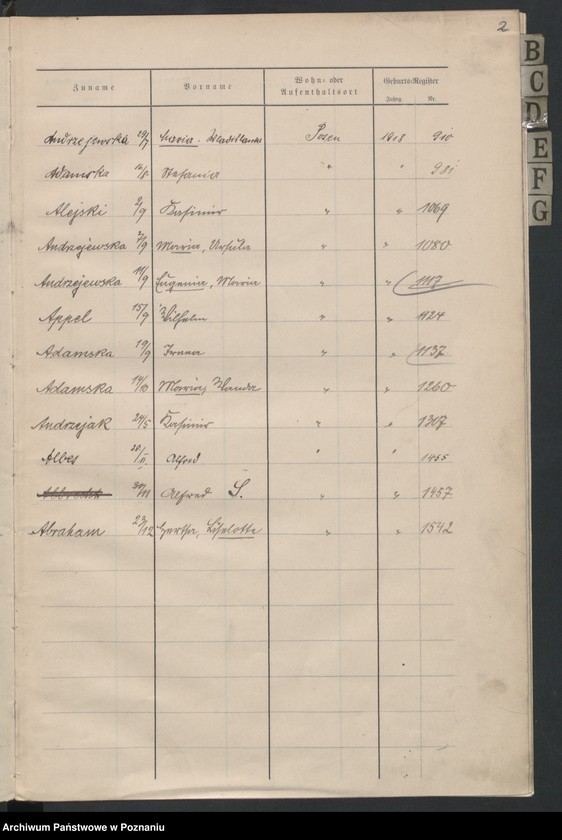 2
Zuname Vorname Wohn- oder Aufenthaltsort Geburts-Register
Jahrg. Nr.
Andrzejewska 29/7 Maria Wladislawa Posen 1918 910
Adamska Stefania " " 981
Alejski 2/9 Kasimir " " 1069
Andrzejewska Maria, Ursula " " 1080
Andrzejewska 11/9 Eugenia, Maria " " 1117
Appel 15/9 Wilhelm " " 1124
Adamska 19/9 Irena " " 1137
Adamska 14/10 Maria, Wanda " " 1260
Andrzejak Kasimir " " 1307
Albes Alfred " " 1455
Alfred S. " " 1457
Abraham 23/12 Hertha, Liselotte " " 1542
B
C
D
E
F
G
Archiwum Państwowe w Poznaniu